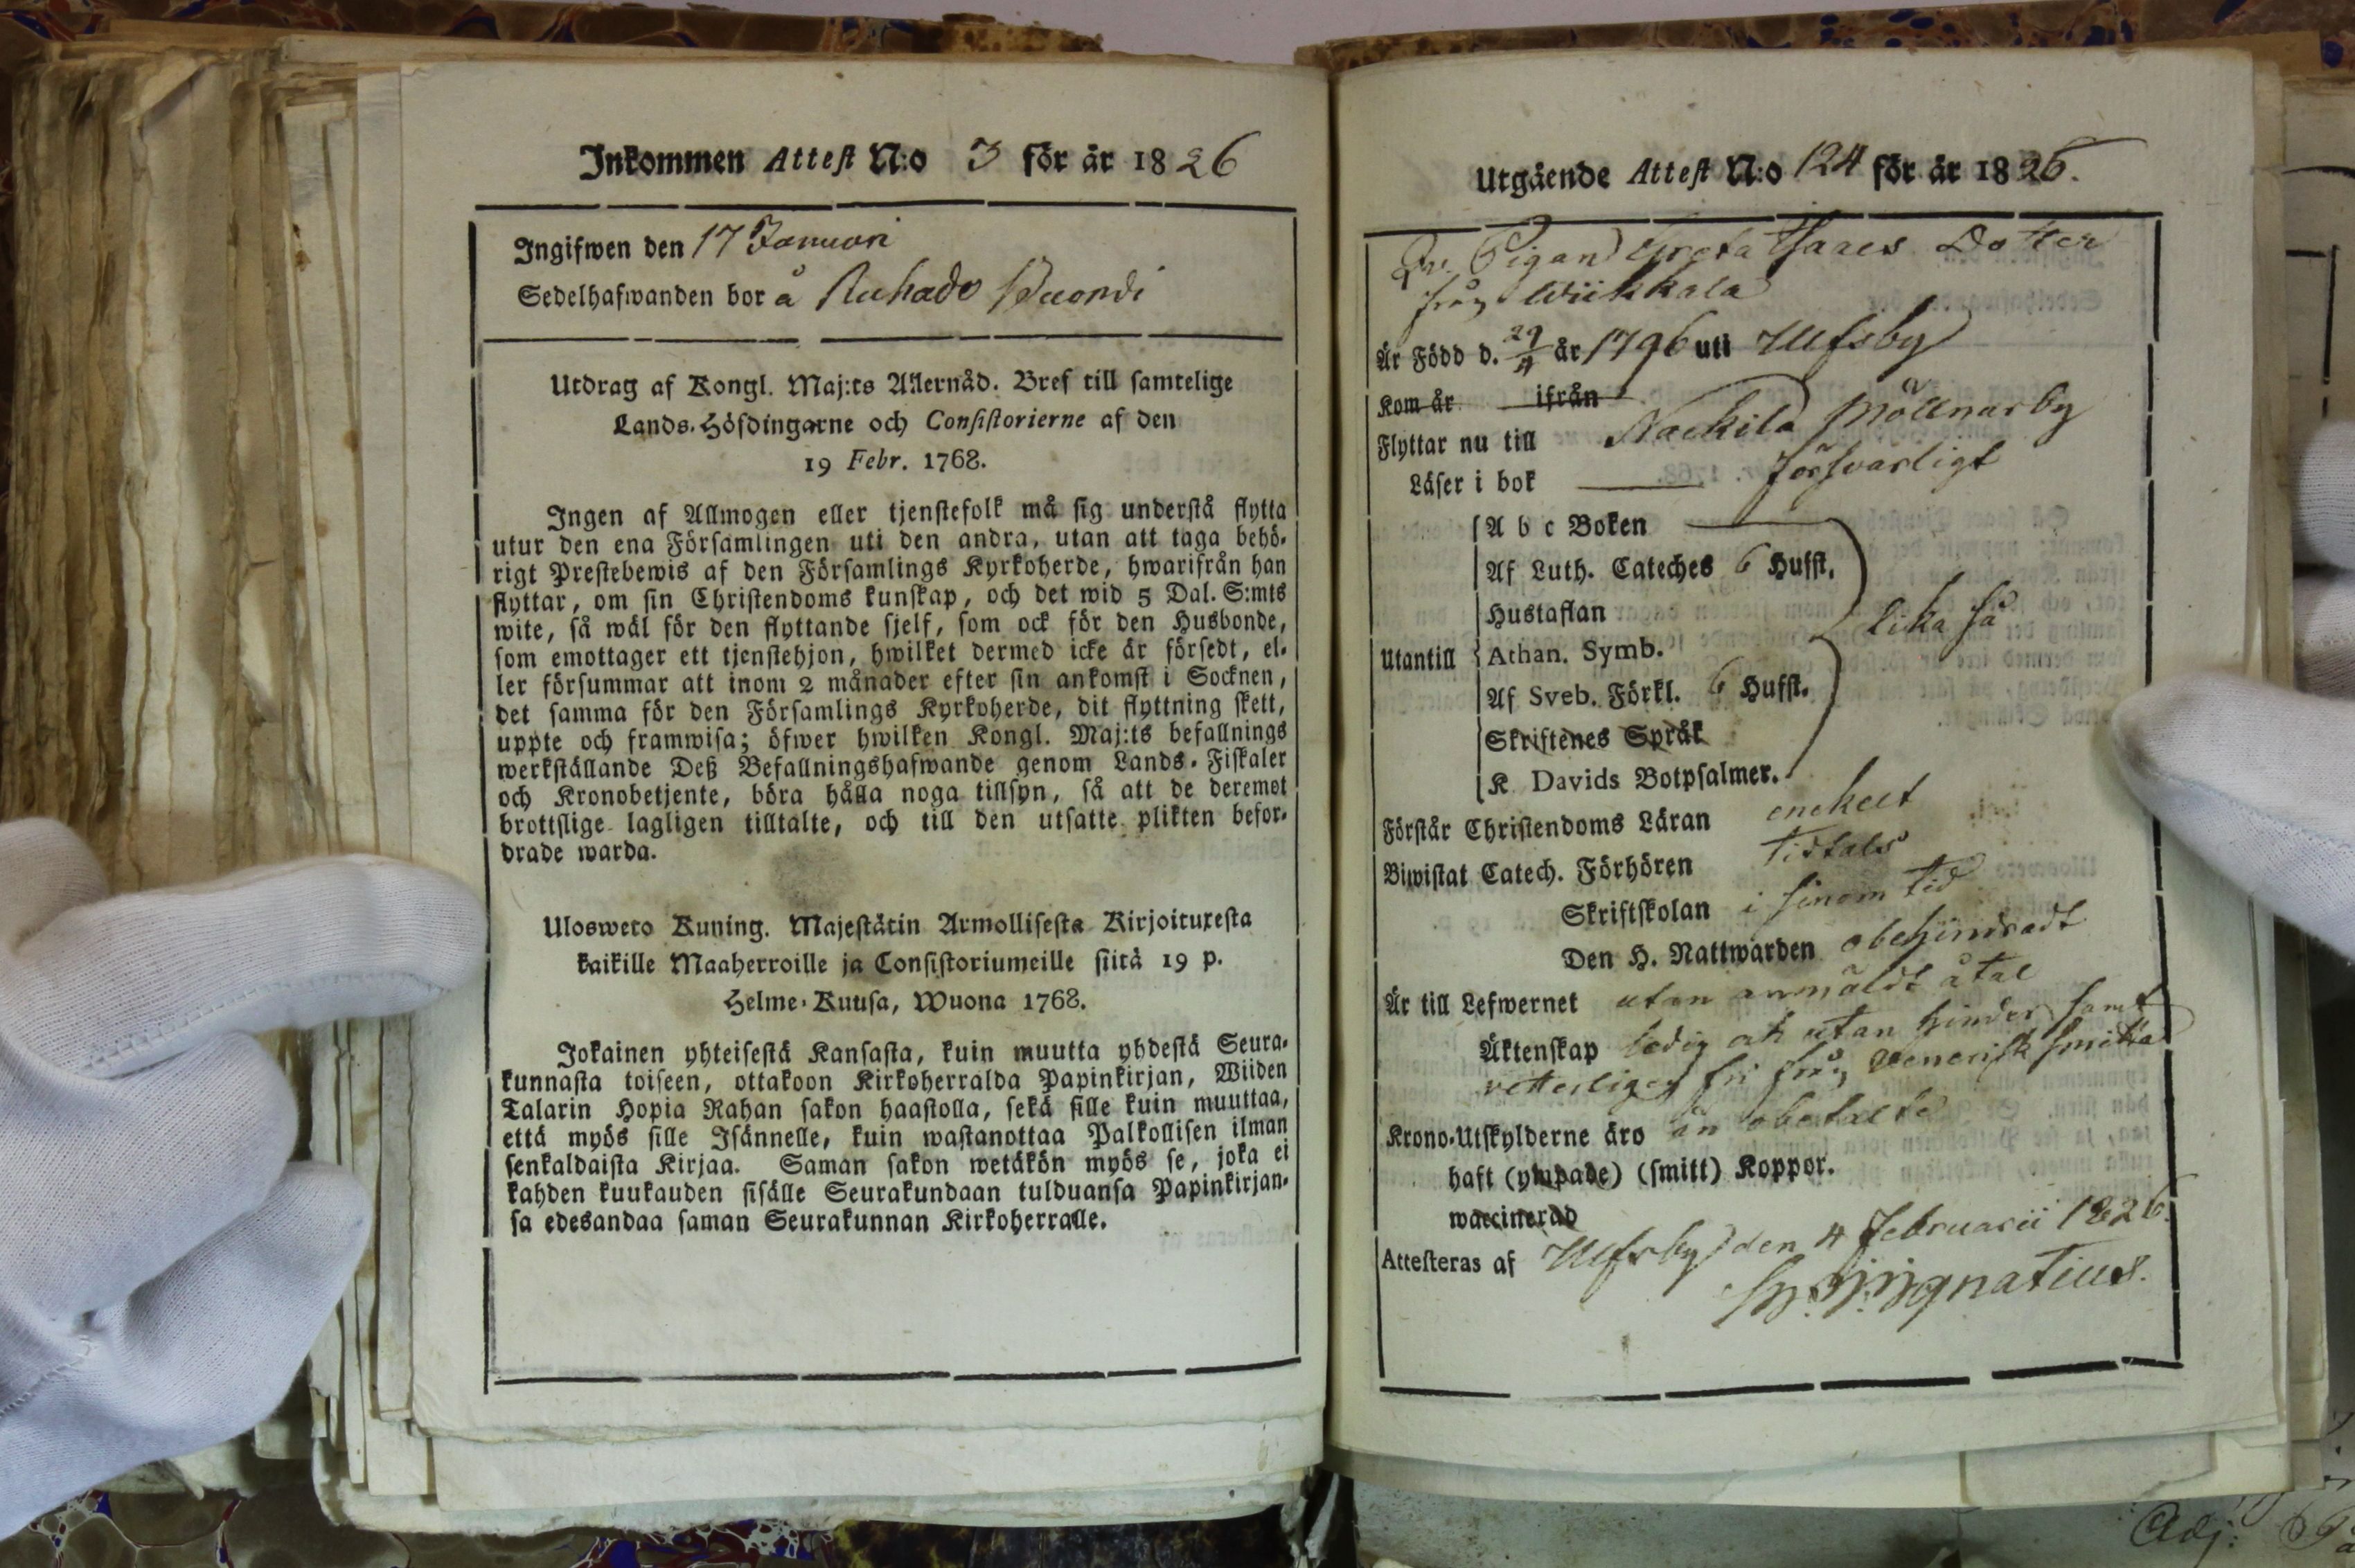 Inkommen Attest N:o 3 för år 1826
Ingifwen den 17 Januari
Sedelhafwanden bor å
Utdrag af Kongl. Maj:ts Allernåd. Bref till samtelige
Lands-Höfdingarne och Consistorierne af den
19 Febr. 1768.
Ingen af Allmogen eller tjenstefolk må sig understå flytta
utur den ena Församlingen uti den andra, utan att taga behö-
rigt Prestebewis af den Församlings Kyrkoherde, hwarifrån han
flyttar, om sin Christendoms kunskap, och det wid 5 Dal. S:mts
wite, så wäl för den flyttande sjelf, som ock för den Husbonde,
som emottager ett tjenstehjon, hwilket dermed icke är försedt, el-
ler försummar att inom 2 månader efter sin ankomst i Socknen,
det samma för den Församlings Kyrkoherde, dit flyttning skett,
uppte och framwisa; öfwer hwilken Kongl. Maj:ts befallnings
werkställande Deß Befallningshafwande genom Lands-Fiskaler
och Kronobetjente, böra hålla noga tillsyn, så att de deremot
brottslige lagligen tilltalte, och till den utsatte plikten befor-
drade warda.
Ulosweto Kuning. Majestätin Armollisesta Kirjoituxesta
kaikille Maaherroille ja Consistoriumeille siitä 19 p.
Helme-Kuusa, Wuona 1768.
Jokainen yhteisestä Kansasta, kuin muutta yhdestä Seura-
kunnasta toiseen, ottakoon Kirkoherralda Papinkirjan, Wiiden
Talarin Hopia Rahan sakon haastolla, sekä sille kuin muuttaa,
että myös sille Isännelle, kuin wastanottaa Palkollisen ilman
senkaldaista Kirjaa. Saman sakon wetäkön myös se, joka ei
kahden kuukauden sisälle Seurakundaan tulduansa Papinkirjan-
sa edesandaa saman Seurakunnan Kirkoherralle.
Utgående Attest N:o 124 för år 1826.
Pigan Greta Isaacs Dotter
från Wiikkala
Är Född d. 29/4 år 1796 uti Ulfsby
Kom år ifrån
Flyttar nu till Nackila Möllnarby
Läser i bok försvarligt
A b c Boken
Af Luth. Cateches 6 Hufst.
Hustaflan
lika så
Utantill Athan. Symb.
Af Sveb. Förkl. 6 Hufst.
Skriftenes Språk
K. Davids Botpsalmer.
Förstår Christendoms Läran enkelt
Biwistat Catech. Förhören tidtals
Skriftskolan i sinom tid
Den H. Nattwarden obehindradt
Är till Lefwernet utan anmäldt åtal
Äktenskap ledig och utan hinder samt
veterligen fri från Venerisk smitta
Krono-Utskylderne äro än obetalte
haft (ympade) (smitt) Koppor.
waccinerad
Attesteras af Ulfsby den 4 Februarii 1826.
Ignatius.
Adj: